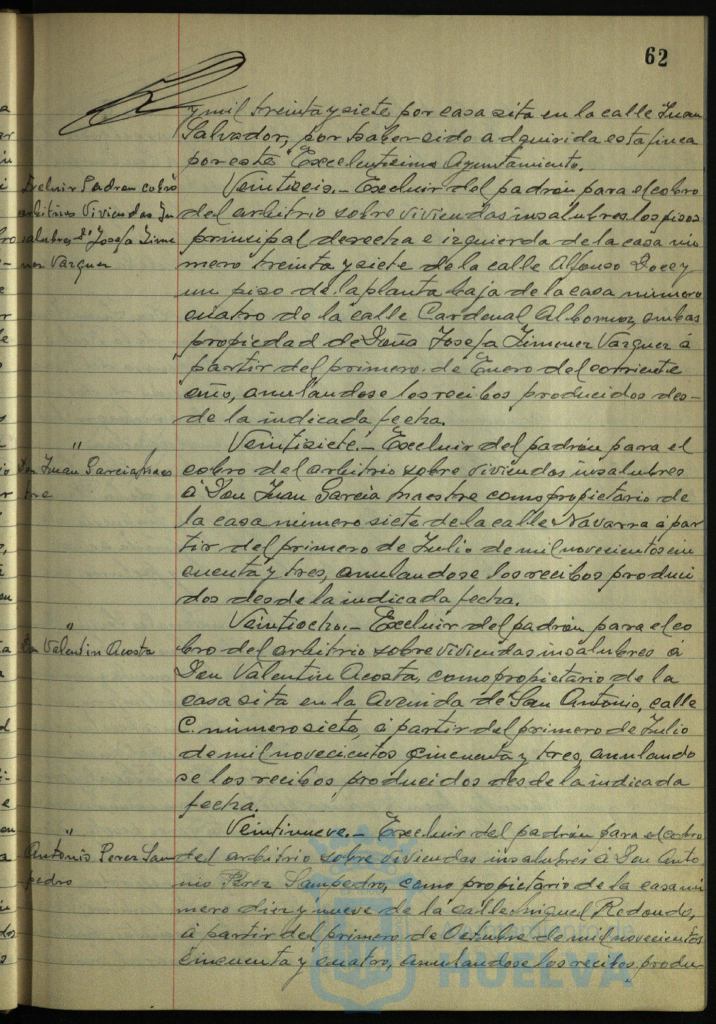 62
y mil treinta y siete por casa sita en la calle Juan
Salvador, por haber sido adquirida esta finca
por este Excelentísimo Ayuntamiento.
Excluir Padron cobro
arbitrios Viviendas In
salubres Dª Josefa Jime
nez Vazquez
Veintiseis.- Excluir del padrón para el cobro
del arbitrio sobre viviendas insalubres los pisos
principal derecha e izquierda de la casa nú
mero treinta y siete de la calle Alfonso Doce y
un piso de la planta baja de la casa número
cuatro de la calle Cardenal Albornoz, ambas
propiedad de Doña Josefa Jimenez Vazquez á
partir del primero de Enero del corriente
año, anulándose los recibos producidos des-
de la indicada fecha.
"
Don Juan Garcia Maes
tre
Veintisiete.- Excluir del padrón para el
cobro del arbitrio sobre viviendas insalubres
á Don Juan Garcia Maestre como propietario de
la casa número siete de la calle Navarra á par
tir del primero de Julio de mil novecientos cin
cuenta y tres, anulandose los recibos produci
dos desde la indicada fecha.
"
Don Valentin Acosta
Veintiocho.- Excluir del padrón para el co
bro del arbitrio sobre viviendas insalubres á
Don Valentin Acosta, como propietario de la
casa sita en la Avenida de San Antonio, calle
C. número siete, á partir del primero de Julio
de mil novecientos cincuenta y tres, anulando
se los recibos producidos desde la indicada
fecha.
"
Antonio Perez Sam
pedro
Veintinueve.- Excluir del padrón para el cobro
del arbitrio sobre viviendas insalubres á Don Anto
nio Pérez Sampedro, como propietario de la casa nú
mero diez y nueve de la calle Miguel Redondo,
á partir del primero de Octubre de mil novecientos
cincuenta y cuatro, anulandose los recibos produ
Ayuntamiento de
HUELVA